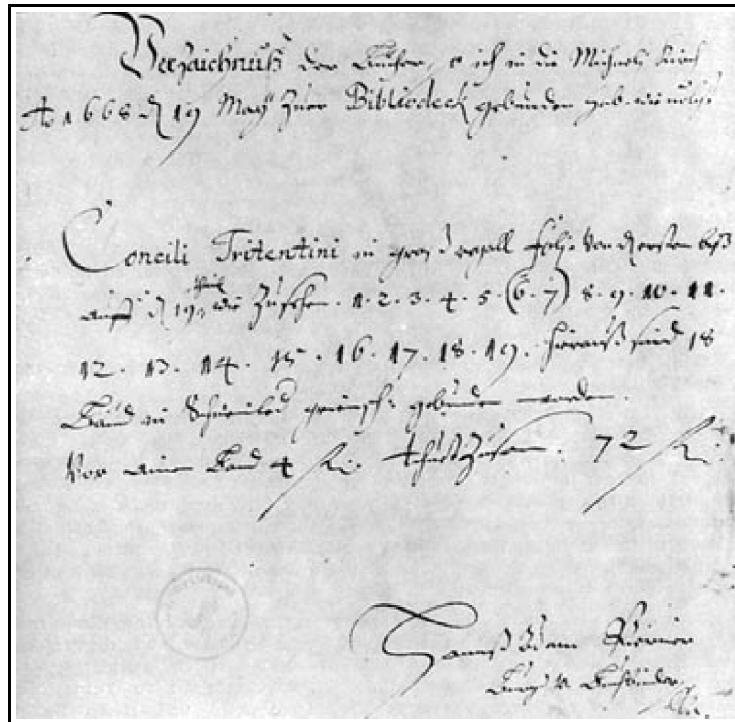 Verzaichnuß der Bücher, so ich in die Michaeli Kirch
Ao 1668 d 19 May Zuer Bibliodeck gebunden hab wie volgt
Concili Tritentini in groß regall folio Von d ersten biß
auff d 19 theil wie Zusehen . 1 . 2 . 3 . 4 . 5 . (6 . 7) 8 . 9 . 10 . 11 .
12 . 13 . 14 . 15 . 16 . 17 . 18 . 19 . hierauß seind 18
Bänd in gebunden worden .
Vor einen Band 4 thuet Zusam . 72
Hannß Adam
Burg. v. Buechbinder